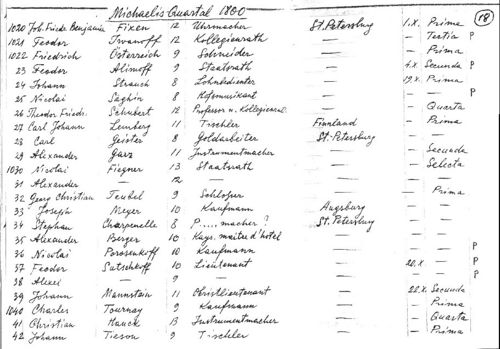 Michaelis Quartal 1800
18
1020 Joh. Friedr. Benjamin Fixen 12 Uhrmacher St. Petersburg 1. X. Prima
1021 Feodor Iwanoff 12 Kollegienrath — — Tertia P
1022 Friedrich Österreich 9 Schneider — — Prima
23 Feodor Alimoff 9 Staatsrath — 4. X. Secunda P
24 Johann Strauch 8 Lohnbedienter — 19. X. Prima
25 Nicolai Saghin 8 Hofomusikant — — P
26 Theodor Friedr. Schubert 12 Professor u. Kollegienrat — — Quarta
27 Carl Johann Lemberg 11 Tischler Finnland — Prima
28 Carl Geisler 8 Goldarbeiter St. Petersburg —
29 Alexander Garz 11 Instrumentmacher — — Secunda
1030 Nicolai Fiegner 13 Staatsrath — — Selecta
31 Alexander — 12 — —
32 Georg Christian Teubel 9 Schlosser — — Prima
33 Joseph Meyer 10 Kaufmann Augsburg —
34 Stephan Charpenelle 8 P.....macher ? St. Petersburg —
35 Alexander Berger 10 Kays. maitre d'hotel — — P
36 Nicolai 10 Kaufmann — — P
37 Feodor Sutschkoff 10 Lieutenant — 20. X. — P
38 Alexei — 9 — — — P
39 Johann Mannstein 11 Obristlieutenant — 22. X. Secunda
1040 Charles Tournay 9 Kaufmann — — Prima
41 Christian Hauck 13 Instrumentmacher — — Quarta
42 Johann 9 Tischler — — Prima